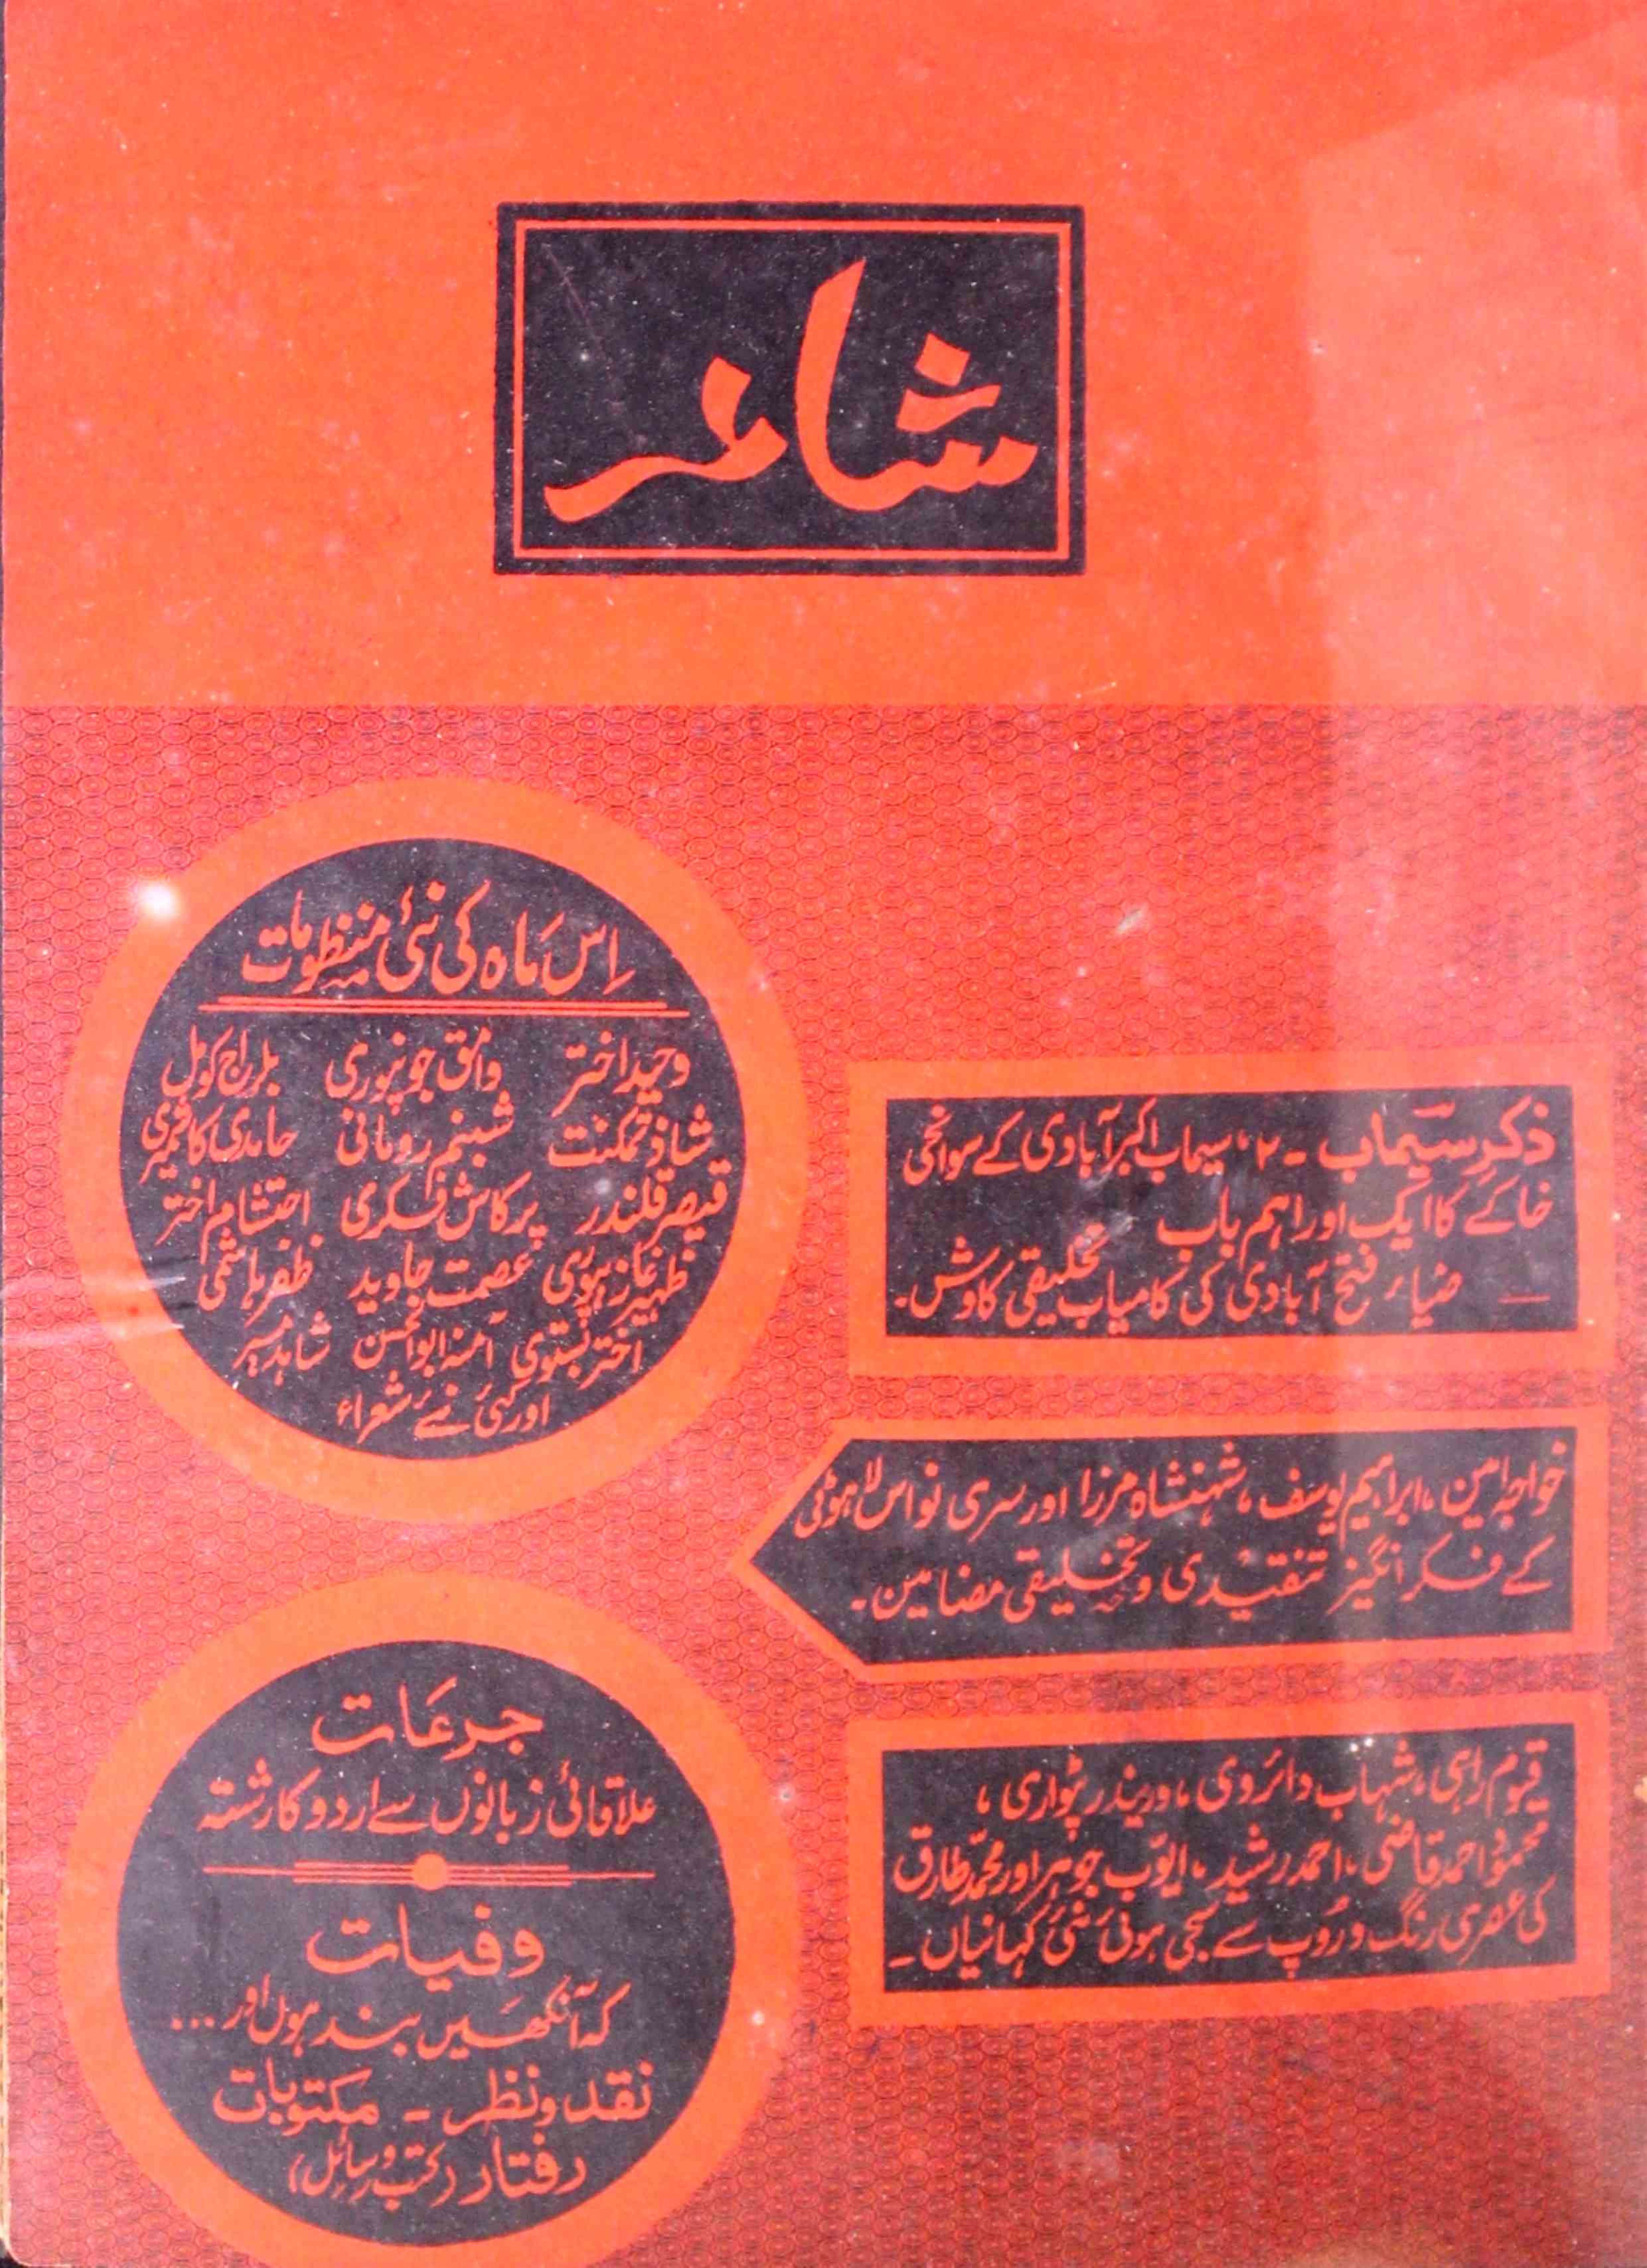 شاعر
ذکرِ سیماب ۔ ۲، سیماب اکبرآبادی کے سوانحی
خاکے کا ایک اور اہم باب
— ضیاء فتح آبادی کی کامیاب تخلیقی کاوش۔
خواجہ امین، ابراہیم یوسف، شہنشاہ مرزا اور سری نواس لاہوٹی
کے فکر انگیز تنقیدی و تخلیقی مضامین۔
قیوم راہی، شہاب دائروی، وریندر پٹواری،
محمود احمد قاضی، احمد رشید، ایوّب جوہر اور محمّد طارق
کی عصری رنگ و رُوپ سے سجی ہوئی نئی کہانیاں۔
اِس مَاہ کی نئی منظومات
وحید اختر وامق جونپوری بلراج کومل
شاذ تمکنت شبنم رومانی حامدی کاشمیری
قیصر قلندر پرکاش فکری احتشام اختر
ظہیر غازیپوری عصمت جاوید ظفر ہاشمی
اختر بستوی آمنہ ابوالحسن شاہد میر
اور کئی نئے شعراء
جرعَات
علاقائی زبانوں سے اردو کا رشتہ
وفیات
کہ آنکھیں بند ہوں اور ...
نقد و نظر ۔ مکتوبات
رفتار (کتب و رسائل)